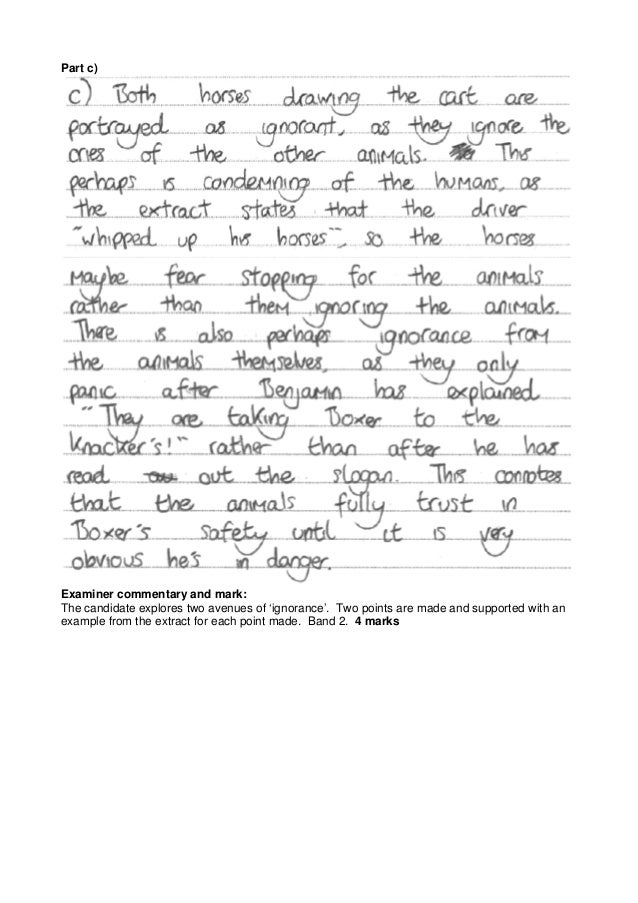 Part c)
c) Both horses drawing the cart are
portrayed as ignorant, as they ignore the
cries of the other animals. This
perhaps is condemning of the humans, as
the extract states that the driver
"whipped up his horses", so the horses
maybe fear stopping for the animals
rather than them ignoring the animals.
There is also perhaps ignorance from
the animals themselves, as they only
panic after Benjamin has explained
"They are taking Boxer to the
Knacker's!" rather than after he has
read out the slogan. This connotes
that the animals fully trust in
Boxer's safety until it is very
obvious he's in danger.
Examiner commentary and mark:
The candidate explores two avenues of 'ignorance'. Two points are made and supported with an
example from the extract for each point made. Band 2. 4 marks